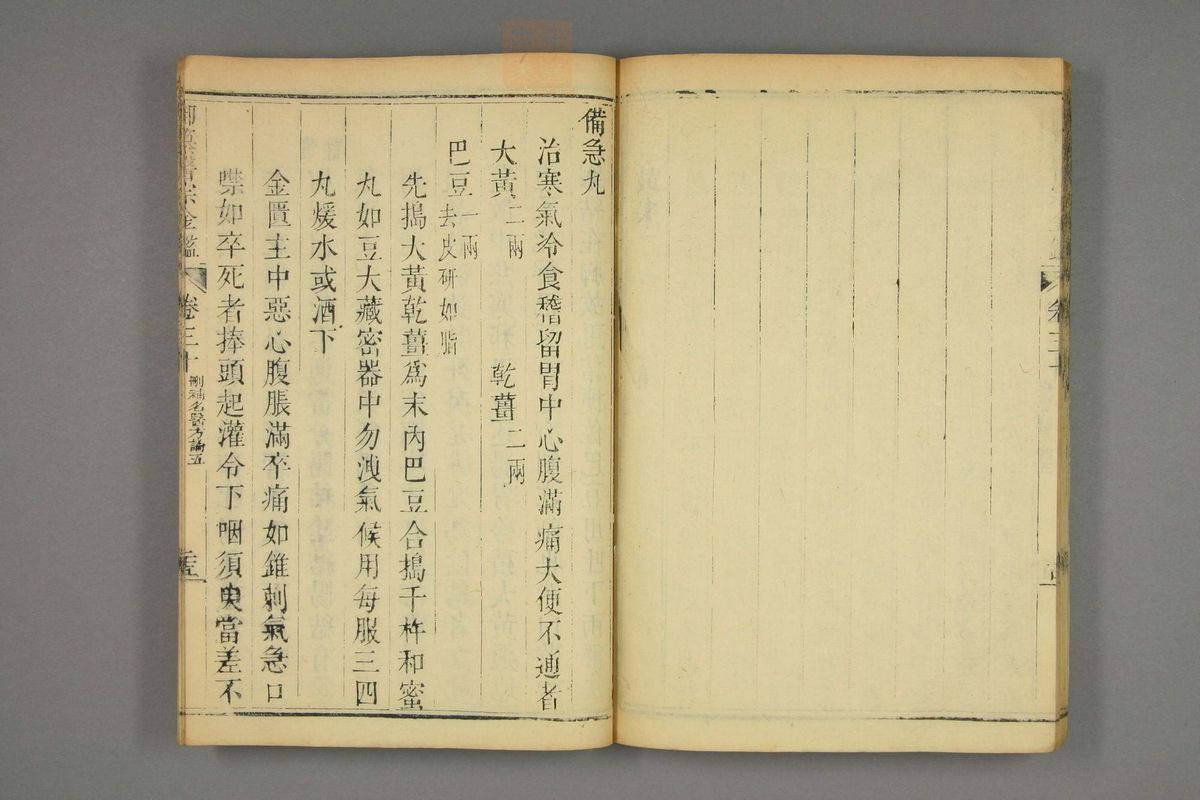 備急丸
治寒氣冷食稽留胃中心腹滿痛大便不通者
大黃二兩 乾薑二兩
巴豆一兩去皮研如脂
先搗大黃乾薑爲末內巴豆合搗千杵和蜜
丸如豆大藏密器中勿洩氣候用每服三四
丸煖水或酒下
金匱主中惡心腹脹滿卒痛如錐刺氣急口
噤如卒死者捧頭起灌令下咽須臾當差不
醫宗金鑑 卷三十 刪補名醫方論五